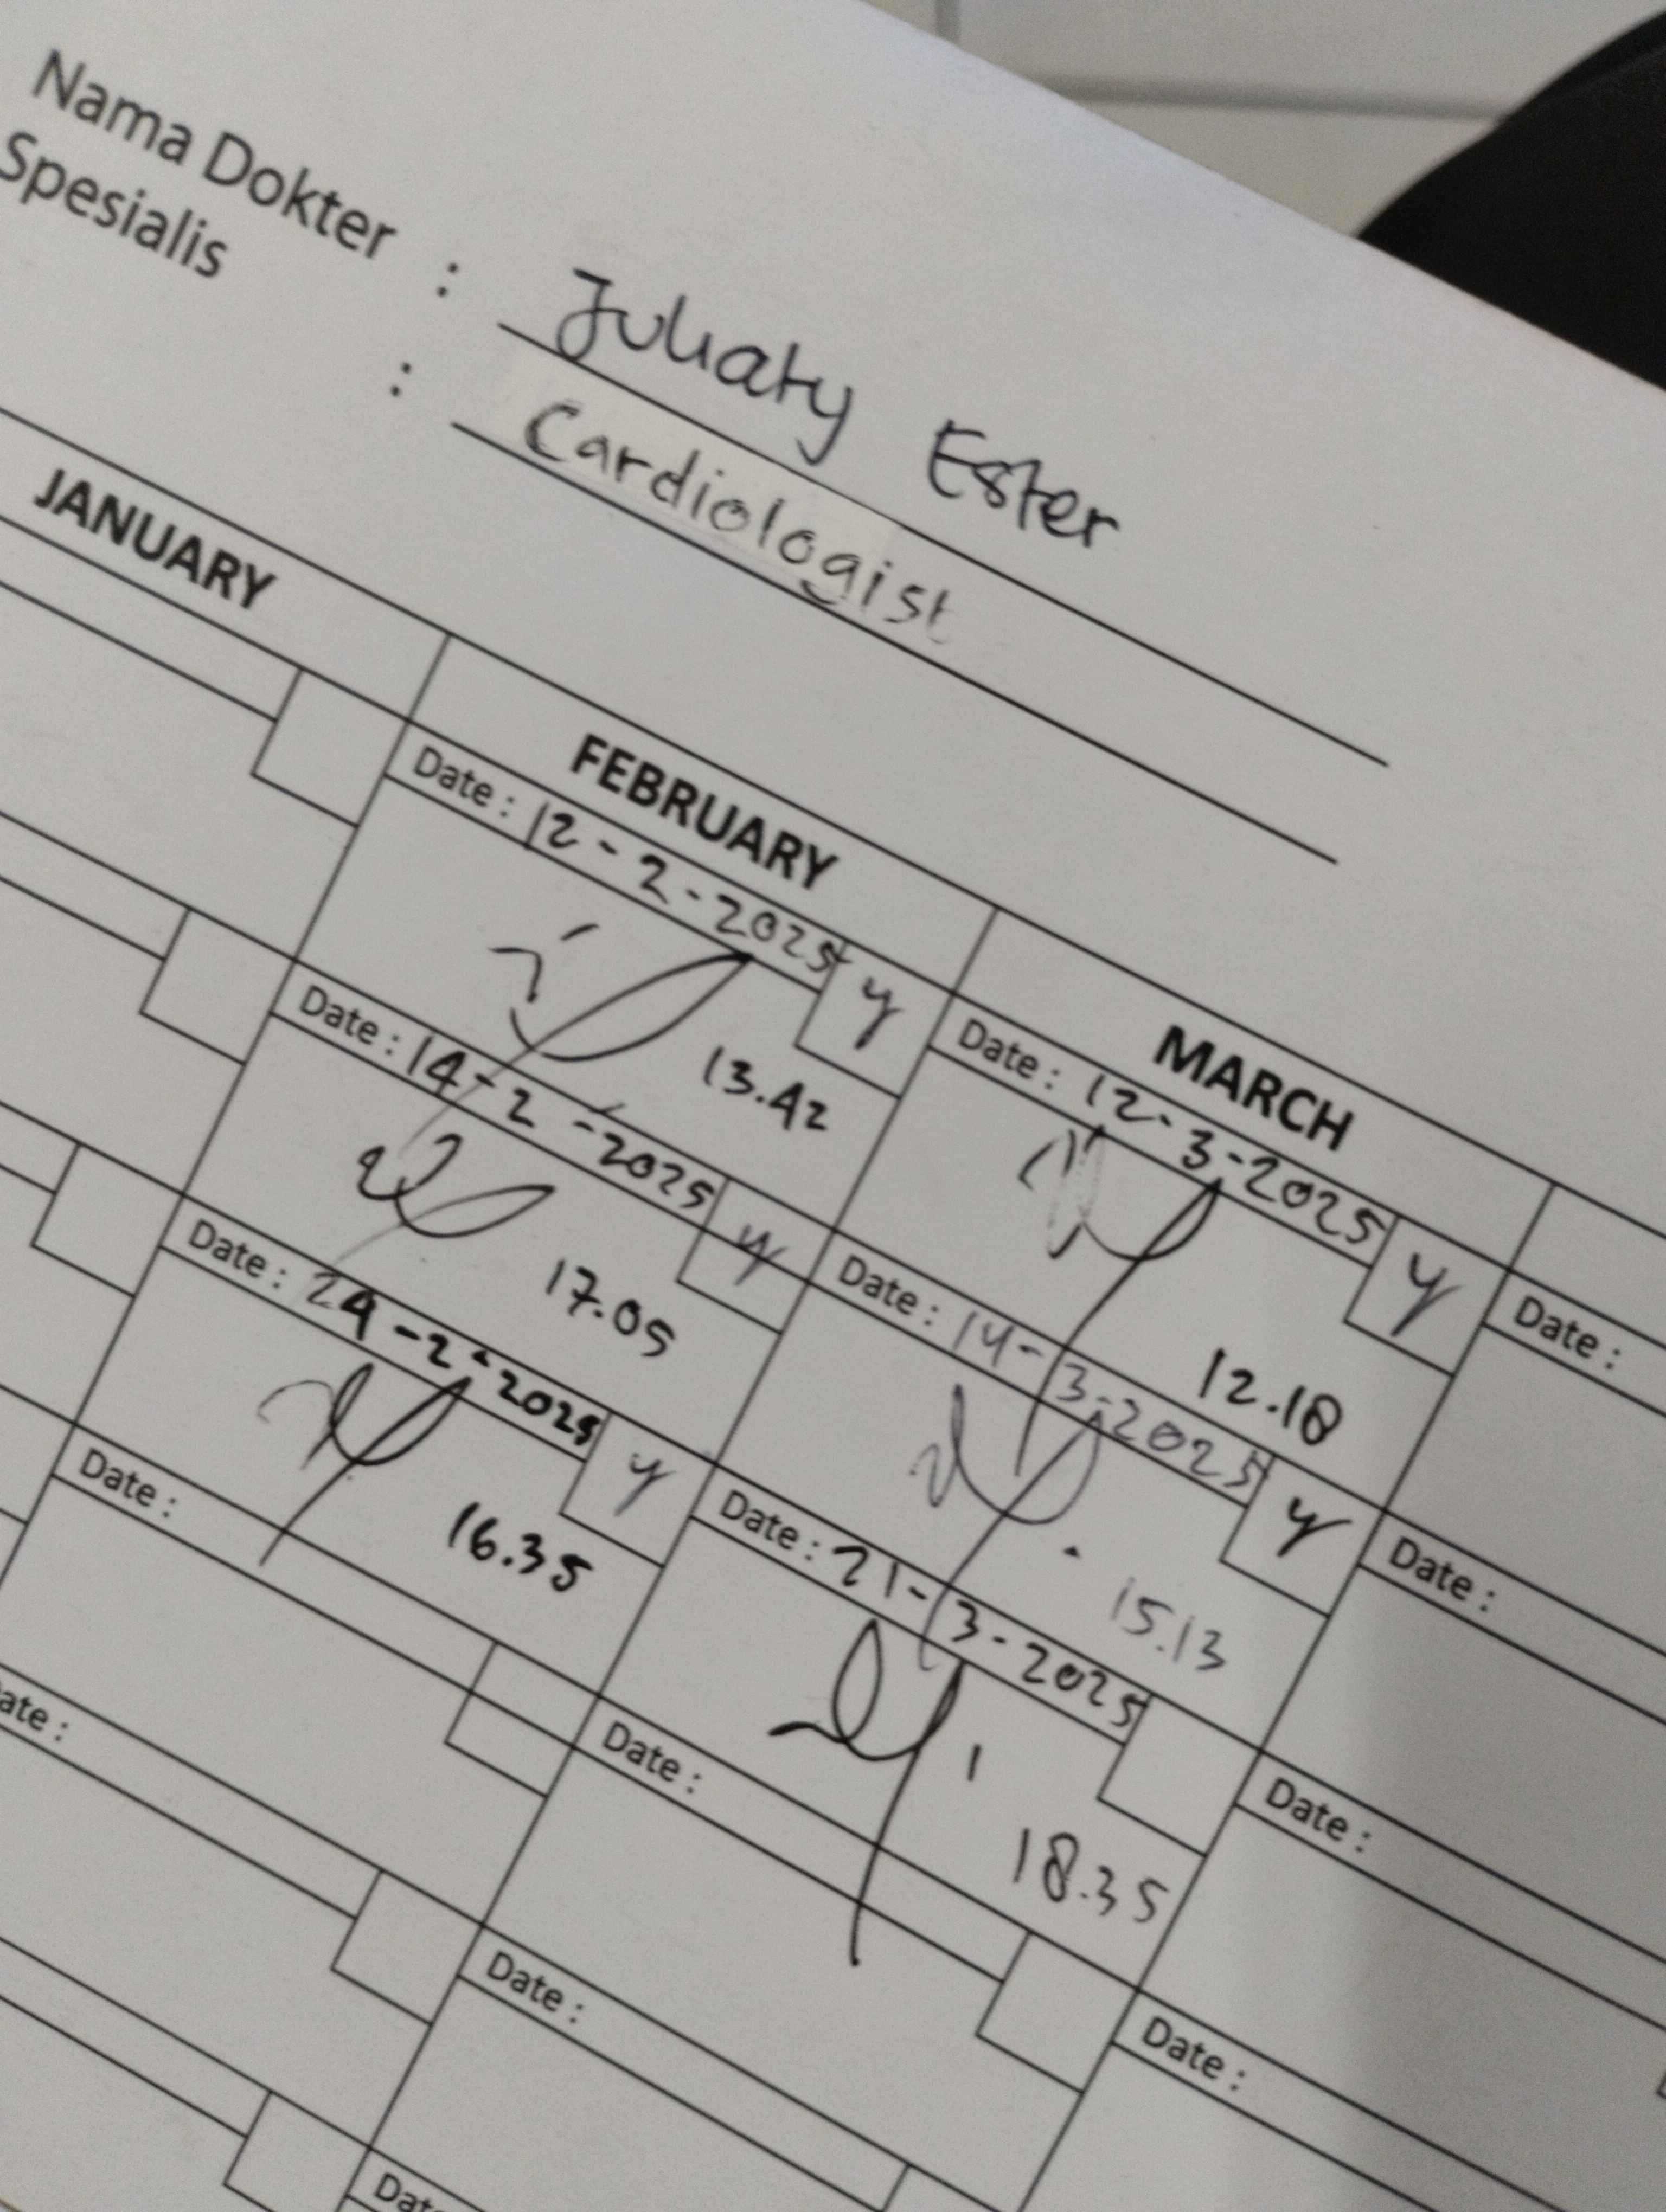 Nama Dokter : Juliaty Ester
Spesialis : Cardiologist
JANUARY FEBRUARY MARCH
Date : 12-2-2025 y
13.42
Date : 14-2-2025 y
17.05
Date : 24-2-2025 y
16.35
Date :
Date :
Date :
Date : 12-3-2025 y
12.18
Date : 14-3-2025 y
15.13
Date : 21-3-2025
18.35
Date :
Date :
Date :
Date :
Date :
Date :